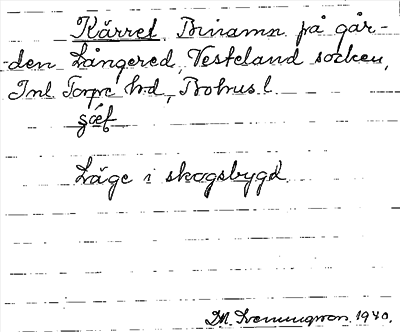 Kärret, Binamn på går-
den Långered, Vesteland socken,
Inl Torpe hd, Bohus l.
Läge i skogsbygd.
1940.